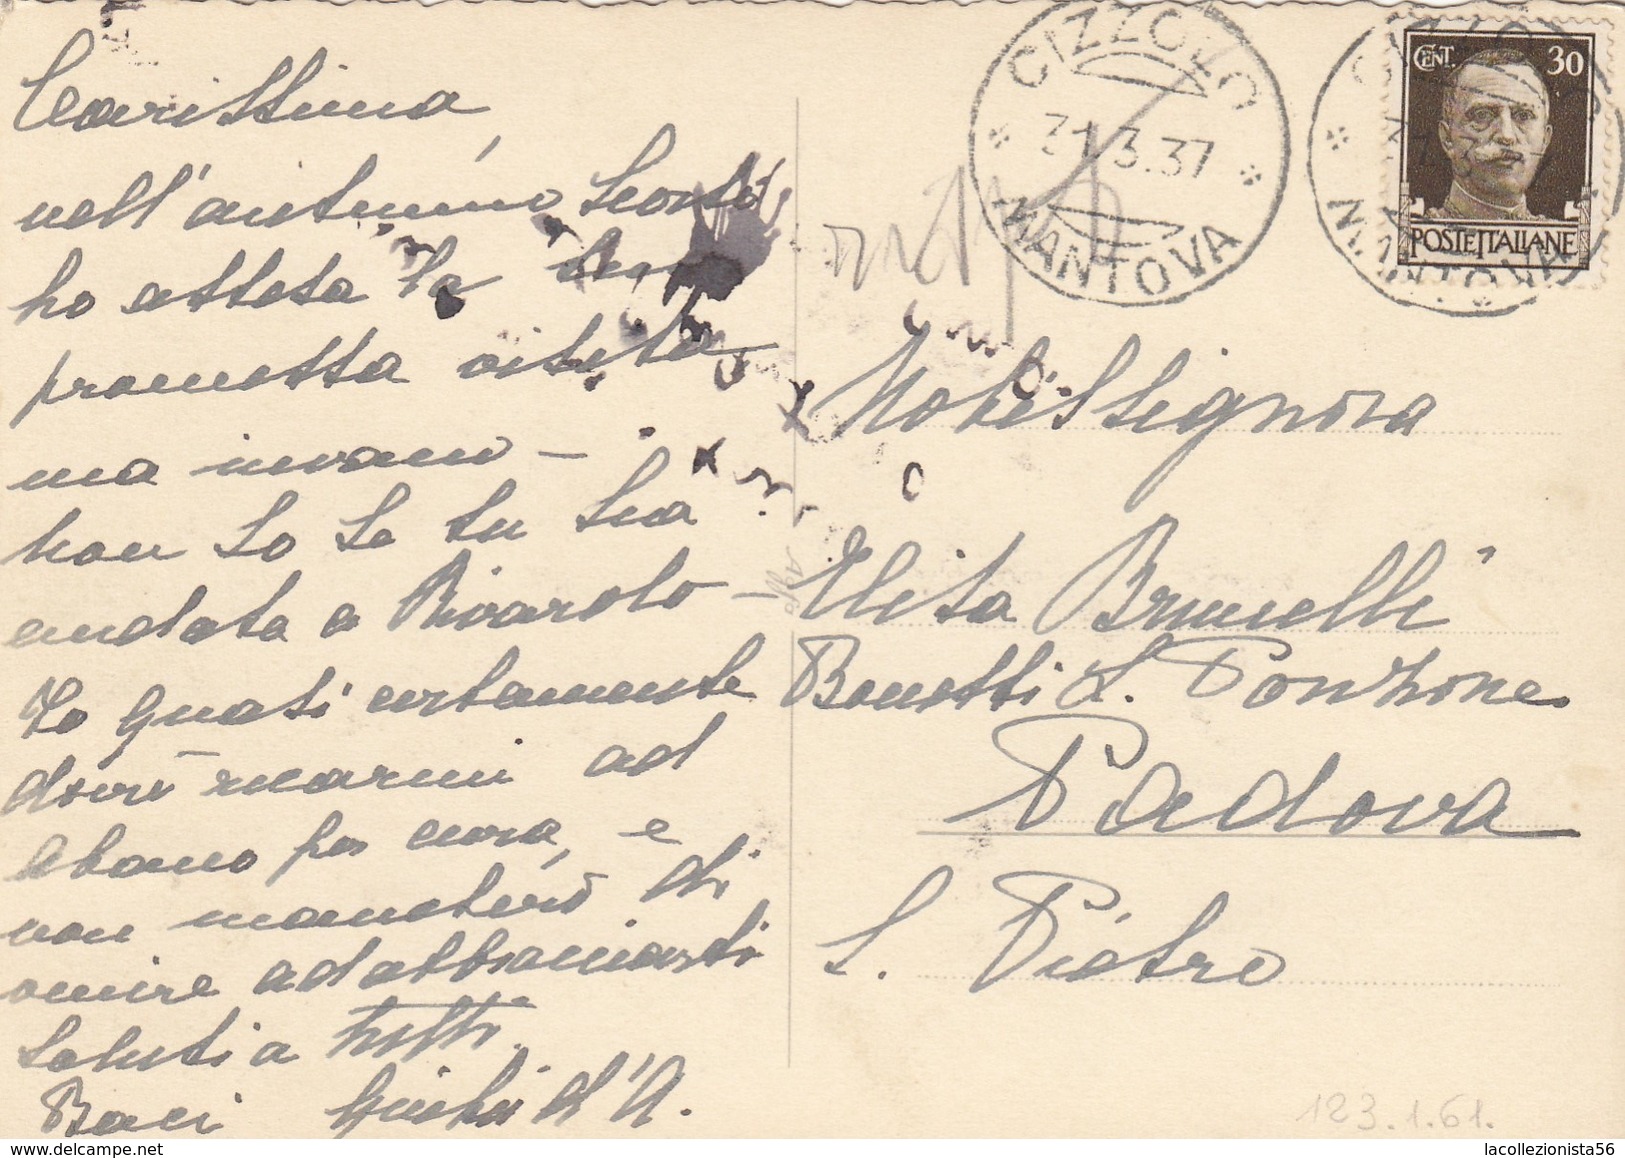 Carissima,
nell'autunno scorso
ho attesa la tua
promessa visita
ma invano -
non so se tu sia
andata a Rivarolo -
Io quasi certamente
dovrò recarmi ad
Abano per cura, e
non mancherò di
venire ad abbracciarti
Saluti a tutti
Baci Giulia d'A.
CIZZOLO
31.3.37
MANTOVA
CENT. 30
POSTE ITALIANE
CIZZOLO
MANTOVA
Nobil Signora
Elisa Brunelli
Bonetti
Padova
S. Pietro
123.1.61.
lacollezionista56